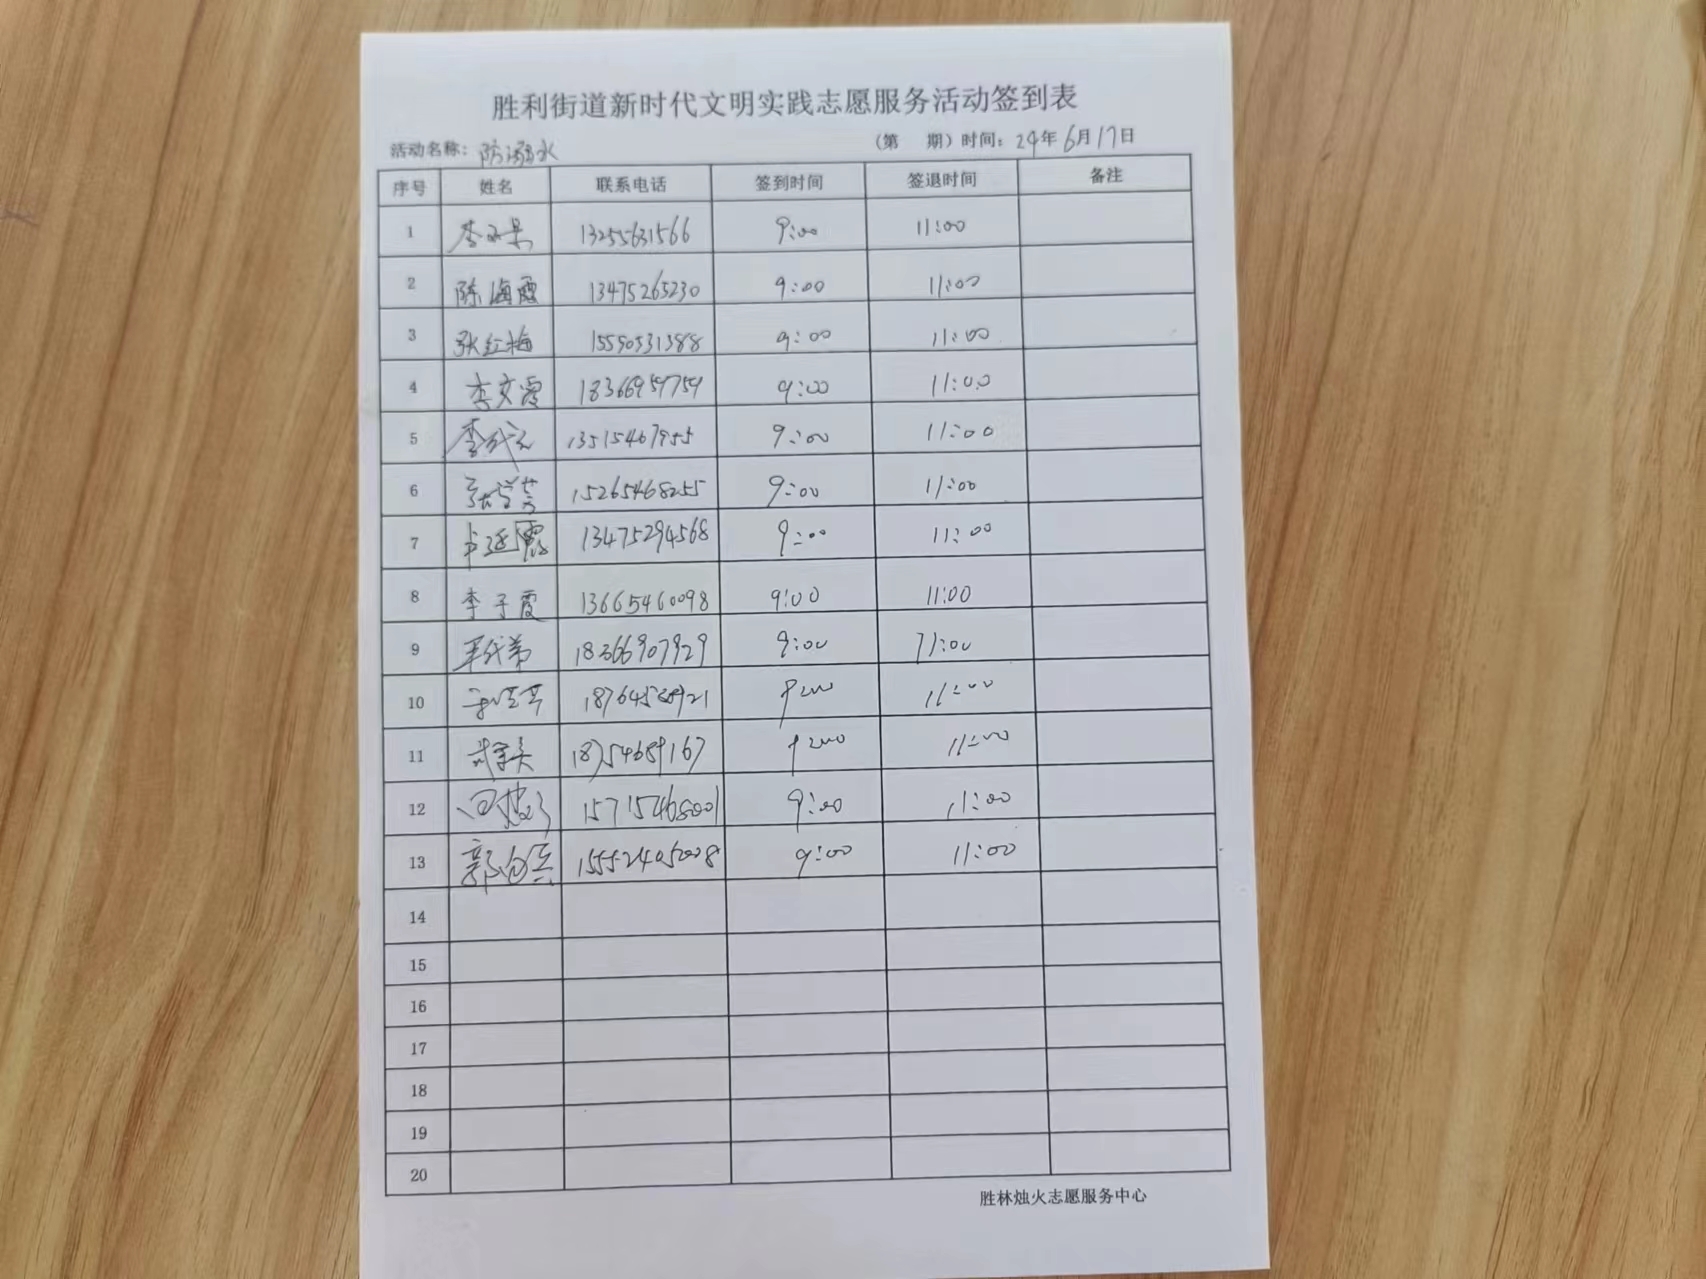 胜利街道新时代文明实践志愿服务活动签到表
活动名称：防溺水 （第 期）时间：24年6月17日
序号 姓名 联系电话 签到时间 签退时间 备注
1 13255631566 9:00 11:00
2 陈海霞 13475265230 9:00 11:00
3 张红梅 15590531388 9:00 11:00
4 李文霞 18366959759 9:00 11:00
5 13515467955 9:00 11:00
6 15265468255 9:00 11:00
7 13475294568 9:00 11:00
8 李子霞 13665460098 9:00 11:00
9 18366907929 9:00 11:00
10 9:00 11:00
11 18754689167 9:00 11:00
12 15715468001 9:00 11:00
13 15552405008 9:00 11:00
14
15
16
17
18
19
20
胜林烛火志愿服务中心